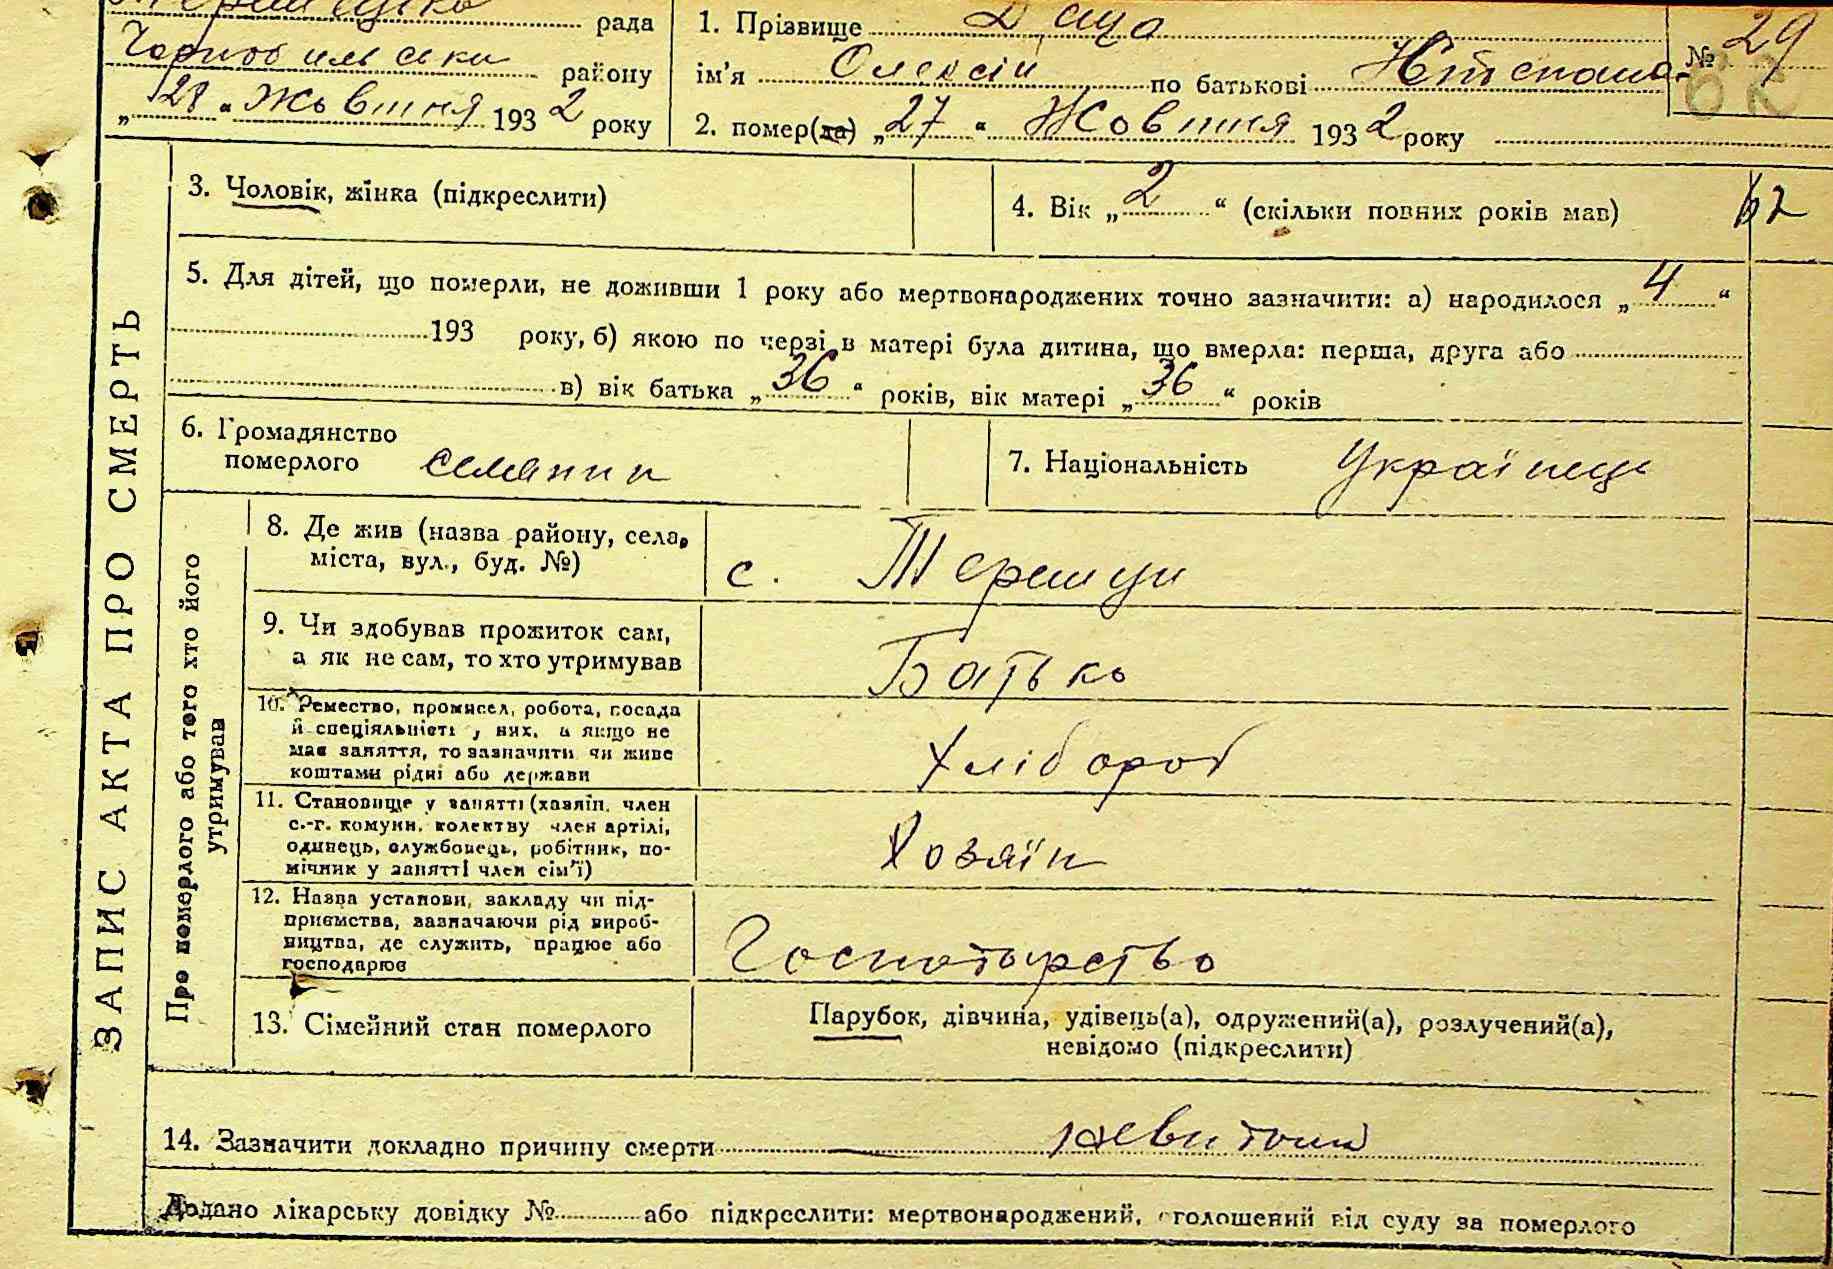 рада
Чорнобильськи району
„28“ Жовтня 1932 року
1. Прізвище Даца
ім'я Олексій по батькові
№ 29
2. помер(ла) „27“ Жовтня 1932 року
ЗАПИС АКТА ПРО СМЕРТЬ
3. Чоловік, жінка (підкреслити)
4. Вік „2“ (скільки повних років мав)
62
5. Для дітей, що померли, не доживши 1 року або мертвонароджених точно зазначити: а) народилося „4“
193 року, б) якою по черзі в матері була дитина, що вмерла: перша, друга або
в) вік батька „36“ років, вік матері „36“ років
6. Громадянство
померлого селянин
7. Національність Українец
Про померлого або того хто його
утримував
8. Де жив (назва району, села,
міста, вул., буд. №)
с. Теремци
9. Чи здобував прожиток сам,
а як не сам, то хто утримував
Батько
10. Ремество, промисел, робота, посада
й спеціяльність у них, а якщо не
має заняття, то зазначити чи живе
коштами рідні або держави
Хлібороб
11. Становище у занятті (хазяїн, член
с.-г. комуни, колективу член артілі,
одинець, службовець, робітник, по-
мічник у занятті член сім'ї)
Хозяїн
12. Назва установи, закладу чи під-
приємства, зазначаючи рід вироб-
ництва, де служить, працює або
господарює
Господарство
13. Сімейний стан померлого
Парубок, дівчина, удівець(а), одружений(а), розлучений(а),
невідомо (підкреслити)
14. Зазначити докладно причину смерти
Додано лікарську довідку № або підкреслити: мертвонароджений, оголошений від суду за померлого